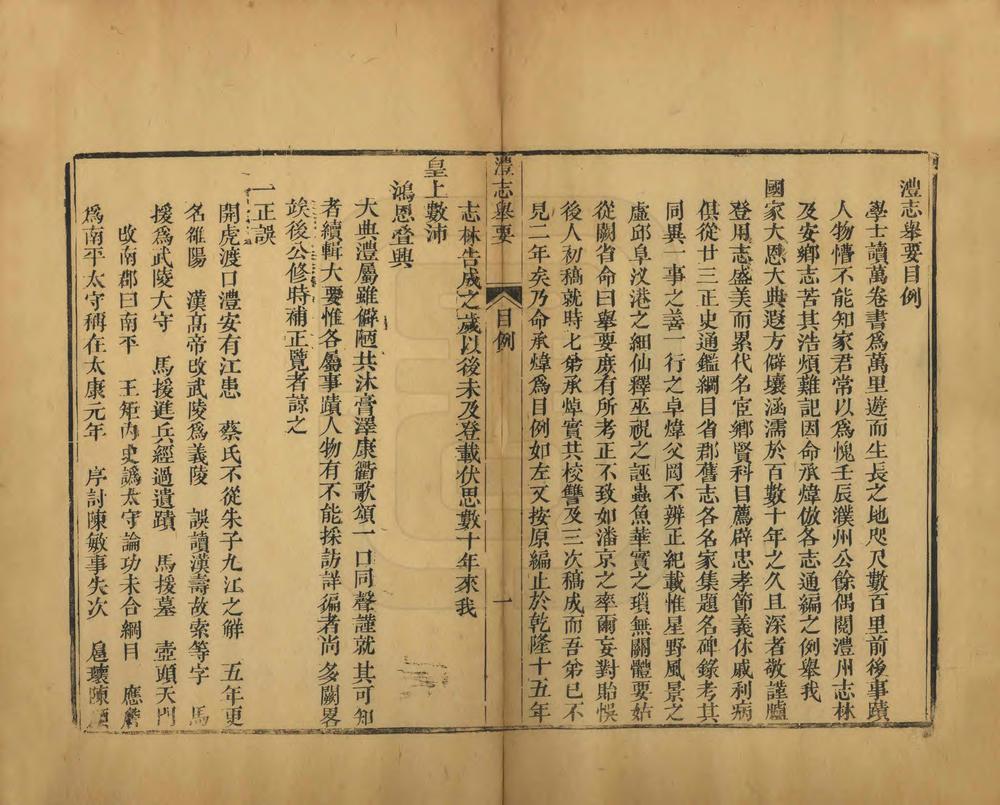 澧志舉要目例
學士讀萬卷書爲萬里遊而生長之地咫尺數百里前後事蹟
人物懵不能知家君常以爲愧壬辰濮州公餘偶閱澧州志林
及安鄉志苦其浩煩難記因命承煒倣各志通編之例舉我
國家大恩大典遐方僻壤涵濡於百數十年之久且深者敬謹臚
登用志盛美而累代名宦鄉賢科目薦辟忠孝節義休戚利病
俱從廿三正史通鑑綱目省郡舊志各名家集題名碑錄考其
同異一事之善一行之卓煒父罔不辨正紀載惟星野風景之
虛邱阜汊港之細仙釋巫祝之誣蟲魚華實之瑣無關體要姑
從闕省命曰舉要庶有所考正不致如潘京之率爾妄對貽悞
後人初稿就時七弟承焯實共校讐及三次稿成而吾弟已不
見二年矣乃命承煒爲目例如左又按原編止於乾隆十五年
澧志舉要
目例
一
志林告成之歲以後未及登載伏思數十年來我
皇上數沛
鴻恩叠興
大典澧屬雖僻陋共沐膏澤康衢歌頌一口同聲謹就其可知
者續輯大要惟各屬事蹟人物有不能採訪詳徧者尚多闕畧
竢後公修時補正覽者諒之
一正誤
開虎渡口澧安有江患 蔡氏不從朱子九江之解 五年更
名雒陽 漢高帝改武陵爲義陵 誤讀漢壽故索等字 馬
援爲武陵大守 馬援進兵經過遺蹟 馬援墓 壺頭天門
改南郡曰南平 王矩內史譌太守論功未合綱目 應詹
爲南平太守稱在太康元年 序討陳敏事失次 扈瓌陳